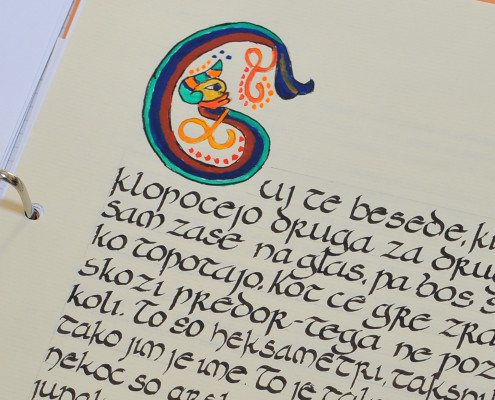 Cuj te besede, k
klopocejo druga za drug
sam zase na glas, pa bos, s
ko topotajo, kot ce gre zra
skozi predor-tega ne poz
koli. To so heksametri, taksn
tako jim je ime. To je tak
nekoc so